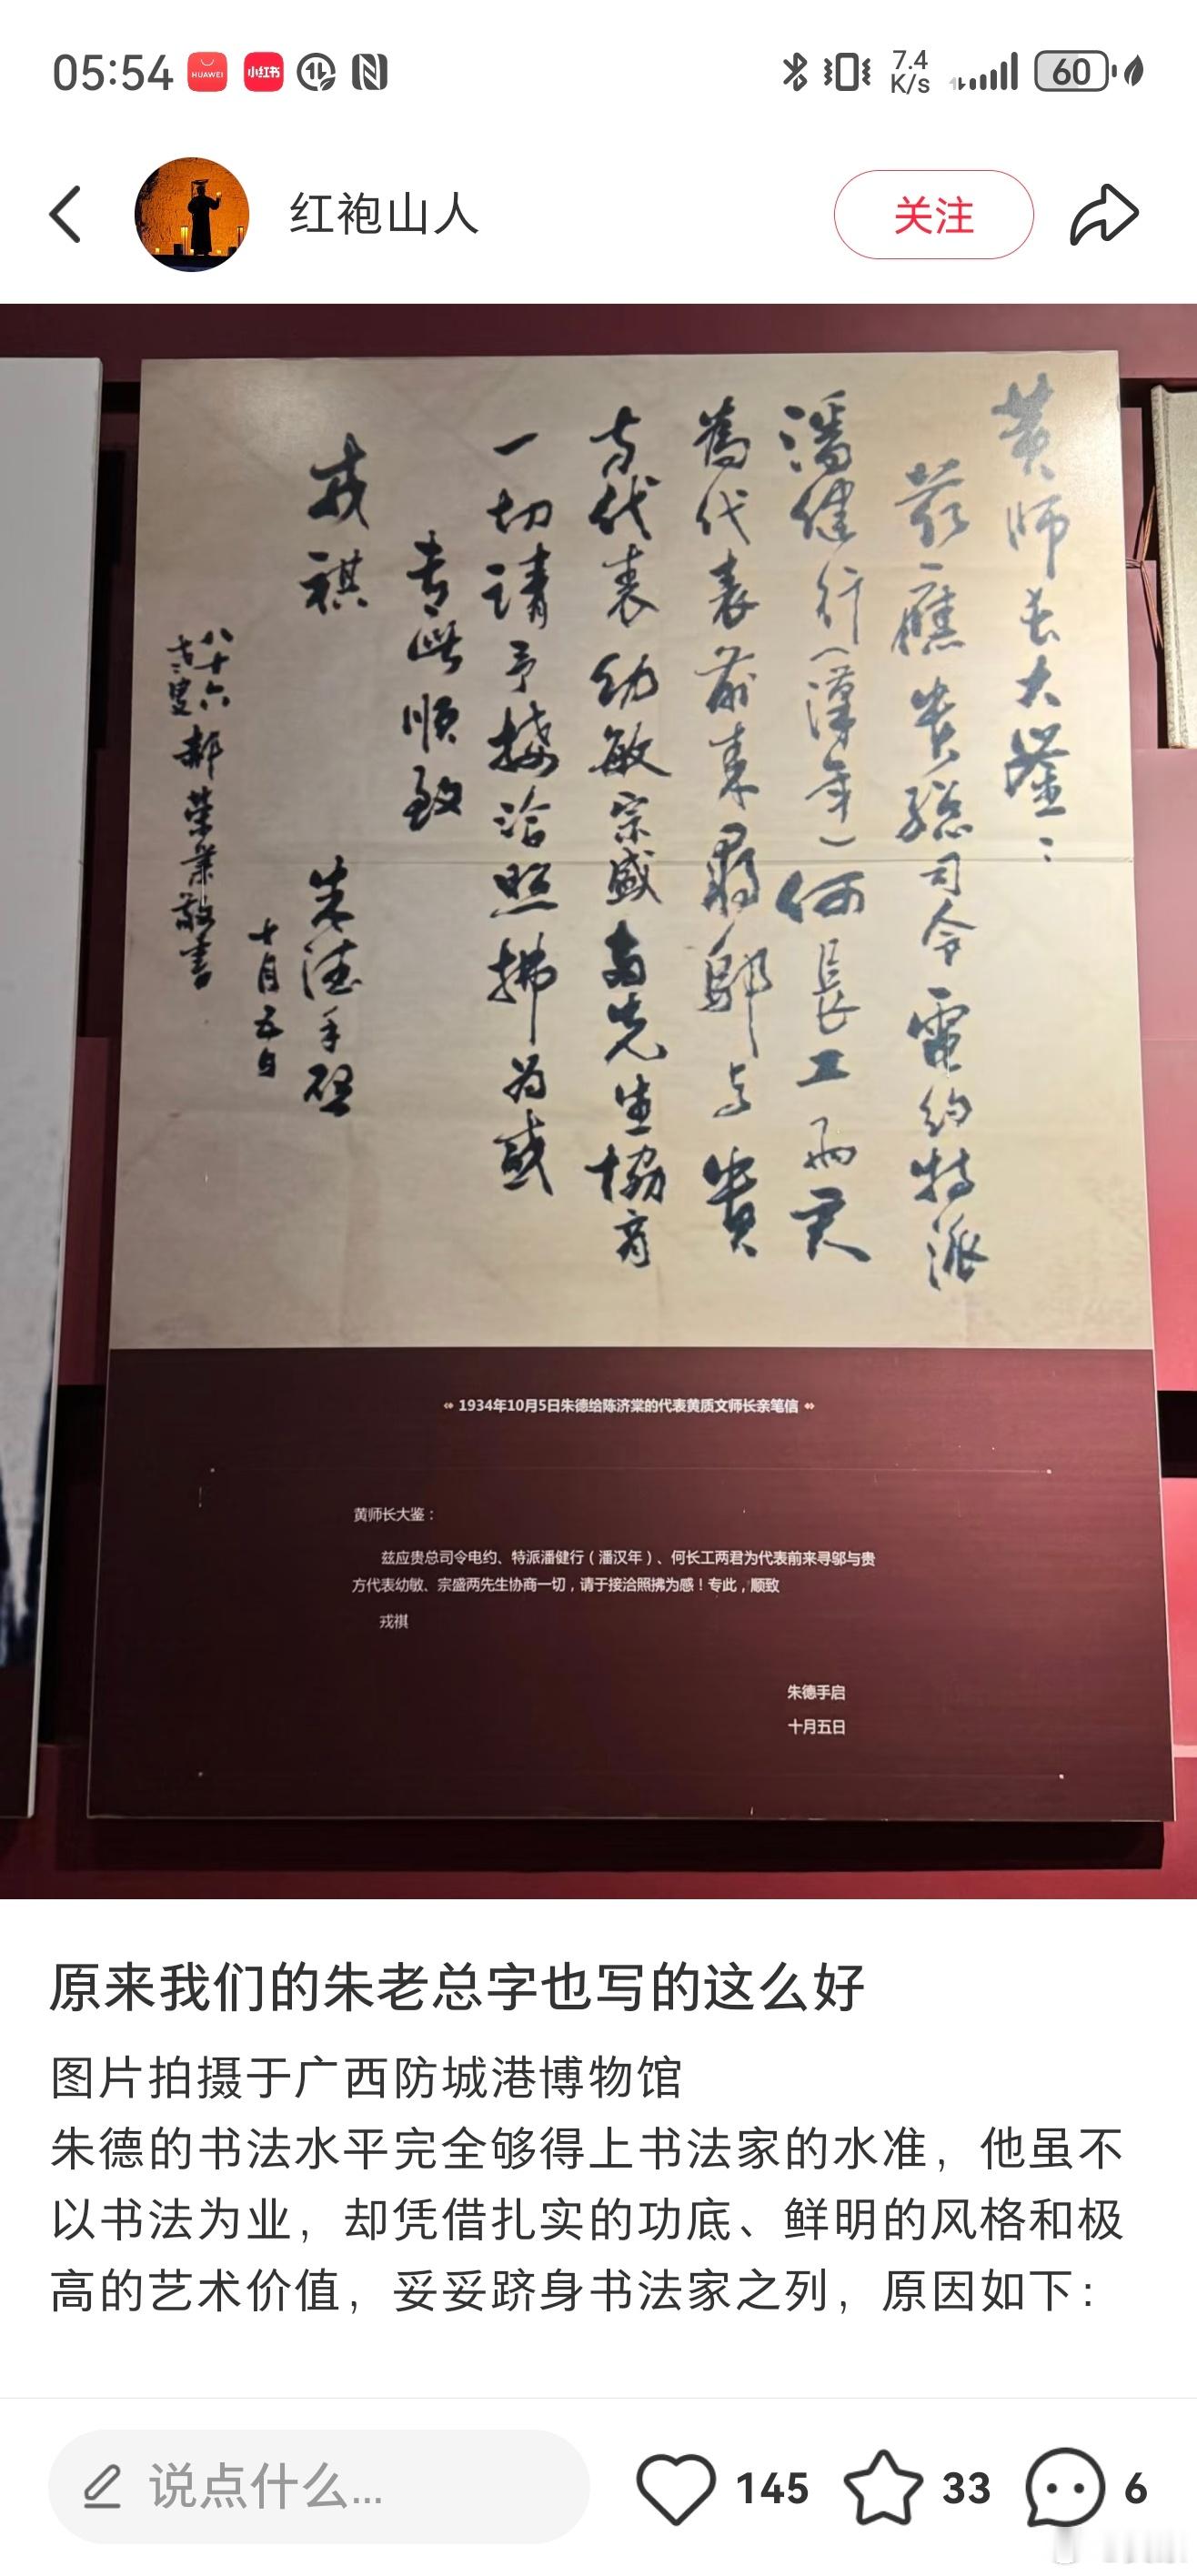 05:54
HUAWEI
小红书
7.4
K/s
60
红袍山人
关注
黄师长大鉴：
兹應贵総司令電约特派
潘健行（漢年）何長工两君
為代表前来尋鄔与贵
方代表幼敏宗盛两先生協商
一切請予接洽照拂为感
专此順致
戎祺
朱德手啓
十月五日
八十六
敬書
1934年10月5日朱德给陈济棠的代表黄质文师长亲笔信
黄师长大鉴：
兹应贵总司令电约、特派潘健行（潘汉年）、何长工两君为代表前来寻邬与贵
方代表幼敏、宗盛两先生协商一切，请于接洽照拂为感！专此，顺致
戎祺
朱德手启
十月五日
原来我们的朱老总字也写的这么好
图片拍摄于广西防城港博物馆
朱德的书法水平完全够得上书法家的水准，他虽不
以书法为业，却凭借扎实的功底、鲜明的风格和极
高的艺术价值，妥妥跻身书法家之列，原因如下：
说点什么...
145
33
6